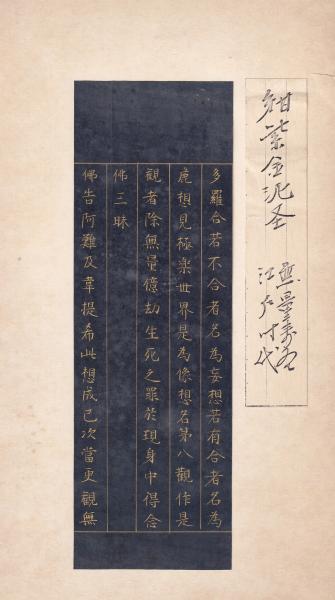 紺紫金泥圣
無量寿
江户时代
多羅合若不合者名為妄想若有合者名為
麁想見極楽世界是為像想名第八觀作是
觀者除無量億劫生死之罪於現身中得念
佛三昧
佛告阿難及韋提希此想成已次當更觀無